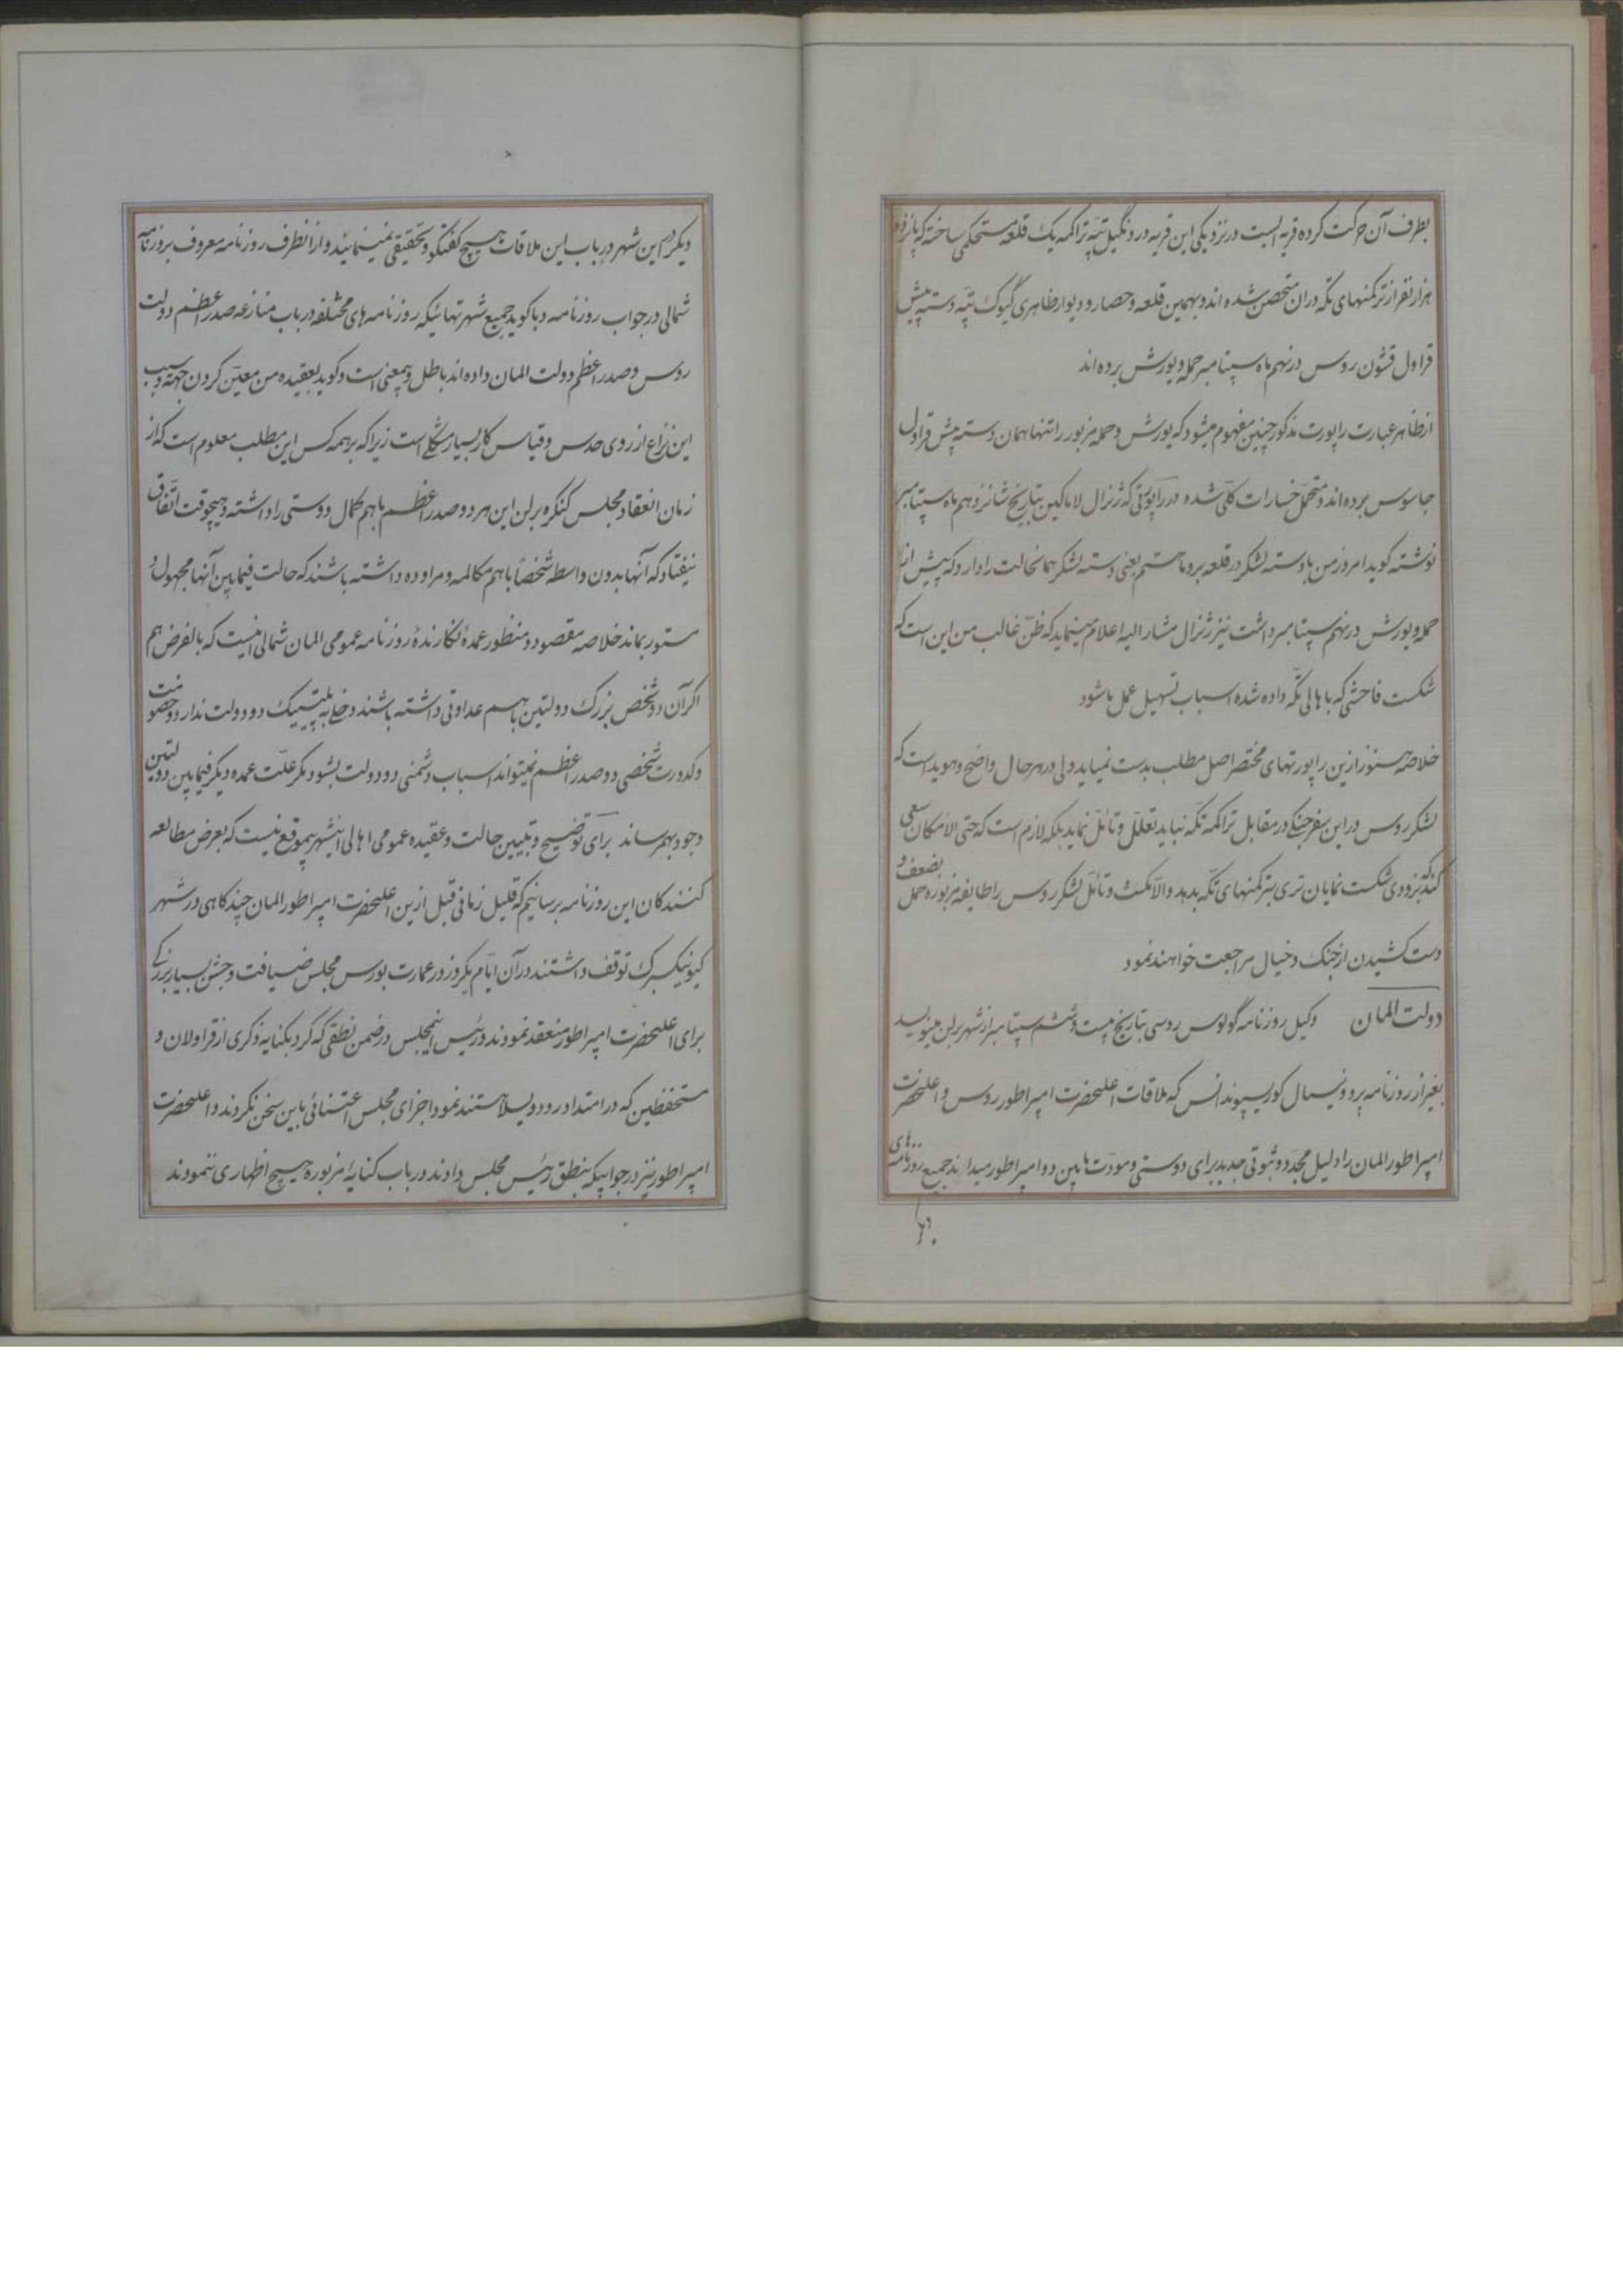 بطرف آن حرکت کرده قریه ایست در نزدیکی این قریه در دونگیل تپه تراکمه یک قلعه مستحکمی ساخته که پانزده
هزار نفر از ترکمنهای تکه دران متحصن شده اند و بهمین قلعه و حصار و دیوار ظاهری گیوک تپه دسته پیش
قراول قشون روس در نهم ماه سپتامبر حمله و یورش برده اند
از ظاهر عبارت راپورت مذکور چنین مفهوم میشود که یورش و حمله مزبور را تنها همان دسته پیش قراول
جاسوس برده اند و متحمل خسارات کلی شده در راپورتی که ژنرال لاماکین بتاریخ شانزدهم ماه سپتامبر
نوشته کوید امروز من با دسته لشکر در قلعه برو ما هستم یعنی دسته لشکر همانحالت را دارد که پیش از
حمله و یورش در نهم سپتامبر داشت نیز ژنرال مشار الیه اعلام مینماید که ظن غالب من این است که
شکست فاحشی که باهالی تکه داده شده اسباب تسهیل عمل ما شود
خلاصه هنوز ازین راپورتهای مختصر اصل مطلب بدست نمیاید ولی در هر حال واضح و هویداست که
لشکر روس در این سفر جنگی در مقابل تراکمه تکه نباید تعلل و تأمل نماید بلکه لازم است که حتی الامکان سعی
کند که بزودی شکست نمایان تری بترکمنهای تکه بدهد والا مکث و تأمل لشکر روس را طایفه مزبوره حمل بضعف و
دست کشیدن از جنک و خیال مراجعت خواهند نمود
دولت المان وکیل روزنامه گولوس روسی بتاریخ بیست و ششم سپتامبر از شهر برلن مینویسد
بغیر از روزنامه پرووینسیال کوریسپوندانس که ملاقات اعلیحضرت امپراطور روس و اعلیحضرت
امپراطور المان را دلیل مجدد و ثبوتی جدید برای دوستی و مودت مابین دو امپراطور میداند جمیع روزنامه های
دیکر
دیکر این شهر در باب این ملاقات هیچ کفتکو و تحقیقی نمینمایند و از انطرف روزنامه معروف بروزنامه
شمالی در جواب روزنامه دبا کوید جمیع شهرتهائیکه روزنامه های مختلفه در باب منازعه صدر اعظم دولت
روس و صدر اعظم دولت المان داده اند باطل و بیمعنی است و کوید بعقیده من معین کردن جهة و سبب
این نزاع از روی حدس و قیاس کار بسیار مشکلی است زیرا که بر همه کس این مطلب معلوم است که از
زمان انعقاد مجلس کنکره برلن این هر دو صدر اعظم باهم کمال دوستی را داشته و هیچوقت اتفاق
نیفتاد که آنها بدون واسطه شخصا باهم مکالمه و مراوده داشته باشند که حالت فیمابین آنها مجهول و
مستور بماند خلاصه مقصود و منظور عمده نکارنده روزنامه عمومی المان شمالی اینست که بالفرض هم
اکر آن دو شخص بزرک دولتین باهم عداوتی داشته باشند دخلی به پلیتیک دو دولت ندارد و خصومت
و کدورت شخصی دو صدر اعظم نمیتواند اسباب دشمنی دو دولت بشود مکر علت عمده دیکر فیمابین دولتین
وجود بهمرساند برای توضیح و تبیین حالت و عقیده عمومی اهالی اینشهر بیموقع نیست که بعرض مطالعه
کنندکان این روزنامه برسانیم که قلیل زمانی قبل ازین اعلیحضرت امپراطور المان چند کاهی در شهر
کیونیکسبرک توقف داشتند در آن ایام یکروز در عمارت بورس مجلس ضیافت و جشن بسیار بزرکی
برای اعلیحضرت امپراطور منعقد نمودند و رئیس اینمجلس در ضمن نطقی که کرد بکنایه ذکری از قراولان و
مستحفظین که در امتداد رود ویسلا هستند نمود اجزای مجلس اعتنائی باین سخن نکردند و اعلیحضرت
امپراطور نیز در جوابیکه بنطق رئیس مجلس دادند در باب کنایه مزبوره هیچ اظهاری ننمودند